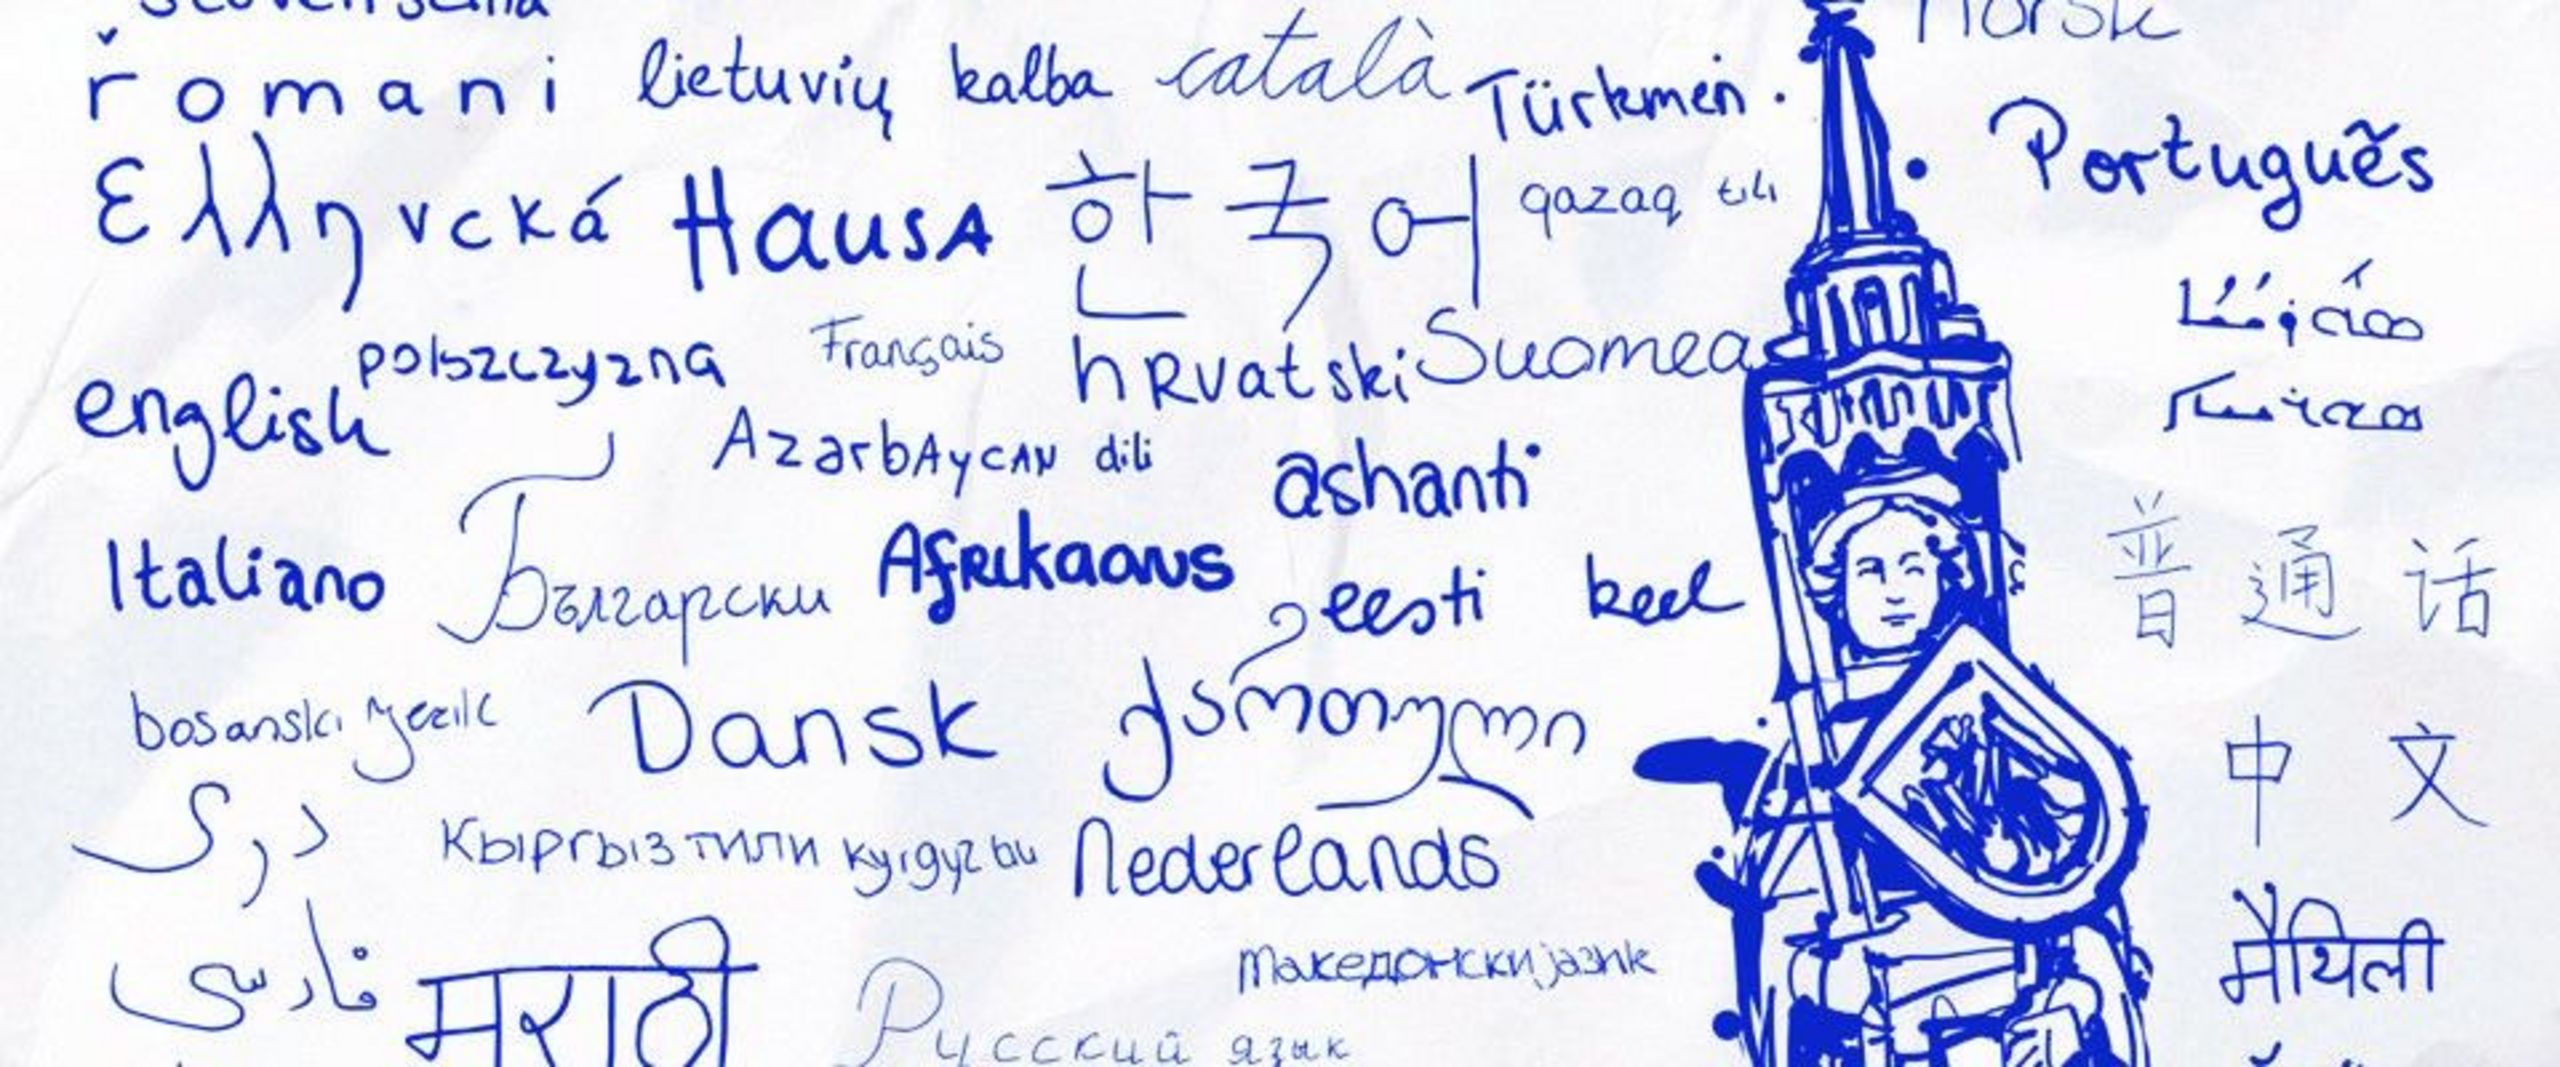 řomani lietuvių kalba català Türkmen
Norsk
Português
Ελληνcκά Hausa 한국어 qazaq tili
english polszczyzna Français hRvatski Suomea
AzərbAycAN dili ashanti
Italiano Български AfRikaans eesti keel
普通话
bosanski jezik Dansk ქართული
中文
دری Кыргыз тили Nederlands
मैथिली
فارسی मराठी македонски јазик
Русский язык